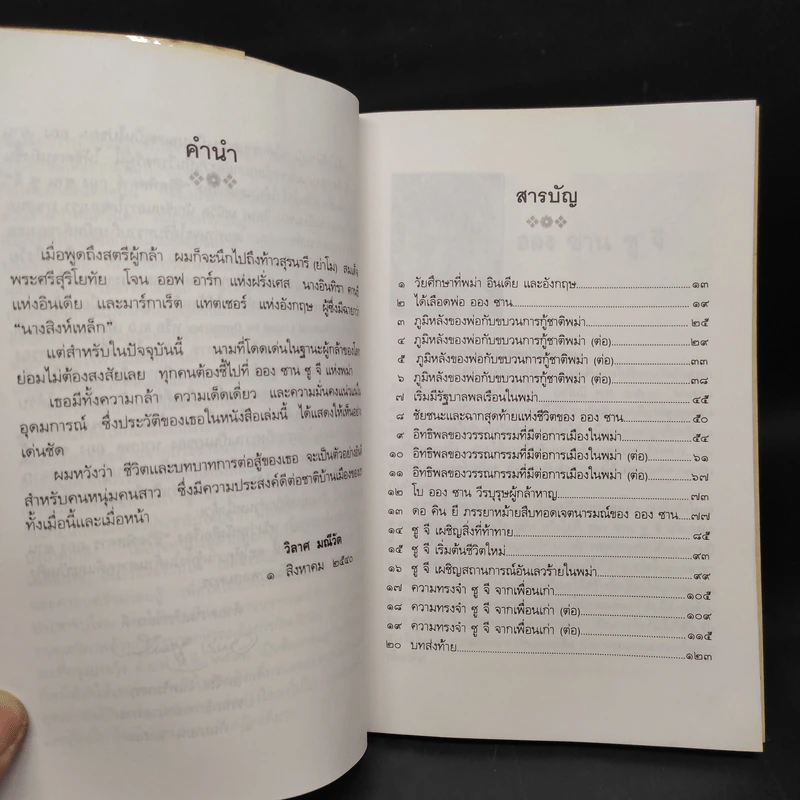 คำนำ
เมื่อพูดถึงสตรีผู้กล้า ผมก็จะนึกไปถึงท้าวสุรนารี (ย่าโม) สมเด็จ
พระศรีสุริโยทัย โจน ออฟ อาร์ก แห่งฝรั่งเศส นางอินทิรา คานธี
แห่งอินเดีย และมาร์กาเร็ต แทตเชอร์ แห่งอังกฤษ ผู้ซึ่งมีฉายาว่า
“นางสิงห์เหล็ก”
แต่สำหรับในปัจจุบันนี้ นามที่โดดเด่นในฐานะผู้กล้าของโลก
ย่อมไม่ต้องสงสัยเลย ทุกคนต้องชี้ไปที่ ออง ซาน ซู จี แห่งพม่า
เธอมีทั้งความกล้า ความเด็ดเดี่ยว และความมั่นคงแน่วแน่ใน
อุดมการณ์ ซึ่งประวัติของเธอในหนังสือเล่มนี้ ได้แสดงให้เห็นอย่าง
เด่นชัด
ผมหวังว่า ชีวิตและบทบาทการต่อสู้ของเธอ จะเป็นตัวอย่างอันดี
สำหรับคนหนุ่มคนสาว ซึ่งมีความประสงค์ดีต่อชาติบ้านเมืองของเขา
ทั้งเมื่อนี้และเมื่อหน้า
วิลาศ มณีวัต
๑ สิงหาคม ๒๕๔๐
สารบัญ
๑ วัยศึกษาที่พม่า อินเดีย และอังกฤษ ๑๓
๒ ได้เลือดพ่อ ออง ซาน ๑๙
๓ ภูมิหลังของพ่อกับขบวนการกู้ชาติพม่า ๒๕
๔ ภูมิหลังของพ่อกับขบวนการกู้ชาติพม่า (ต่อ) ๒๙
๕ ภูมิหลังของพ่อกับขบวนการกู้ชาติพม่า (ต่อ) ๓๓
๖ ภูมิหลังของพ่อกับขบวนการกู้ชาติพม่า (ต่อ) ๓๘
๗ เริ่มมีรัฐบาลพลเรือนในพม่า ๔๕
๘ ชัยชนะและฉากสุดท้ายแห่งชีวิตของ ออง ซาน ๕๐
๙ อิทธิพลของวรรณกรรมที่มีต่อการเมืองในพม่า ๕๔
๑๐ อิทธิพลของวรรณกรรมที่มีต่อการเมืองในพม่า (ต่อ) ๖๑
๑๑ อิทธิพลของวรรณกรรมที่มีต่อการเมืองในพม่า (ต่อ) ๖๗
๑๒ โบ ออง ซาน วีรบุรุษผู้กล้าหาญ ๗๓
๑๓ ดอ คิน ยี ภรรยาหม้ายสืบทอดเจตนารมณ์ของ ออง ซาน ๗๗
๑๔ ซู จี เผชิญสิ่งที่ท้าทาย ๘๕
๑๕ ซู จี เริ่มต้นชีวิตใหม่ ๙๓
๑๖ ซู จี เผชิญสถานการณ์อันเลวร้ายในพม่า ๙๙
๑๗ ความทรงจำ ซู จี จากเพื่อนเก่า ๑๐๕
๑๘ ความทรงจำ ซู จี จากเพื่อนเก่า (ต่อ) ๑๐๙
๑๙ ความทรงจำ ซู จี จากเพื่อนเก่า (ต่อ) ๑๑๕
๒๐ บทส่งท้าย ๑๒๓